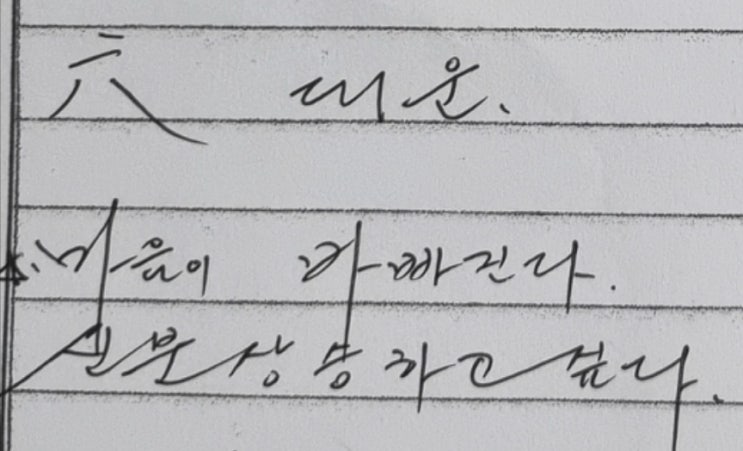 六 대운.
마음이 바빠진다.
신분상승하고 싶다.